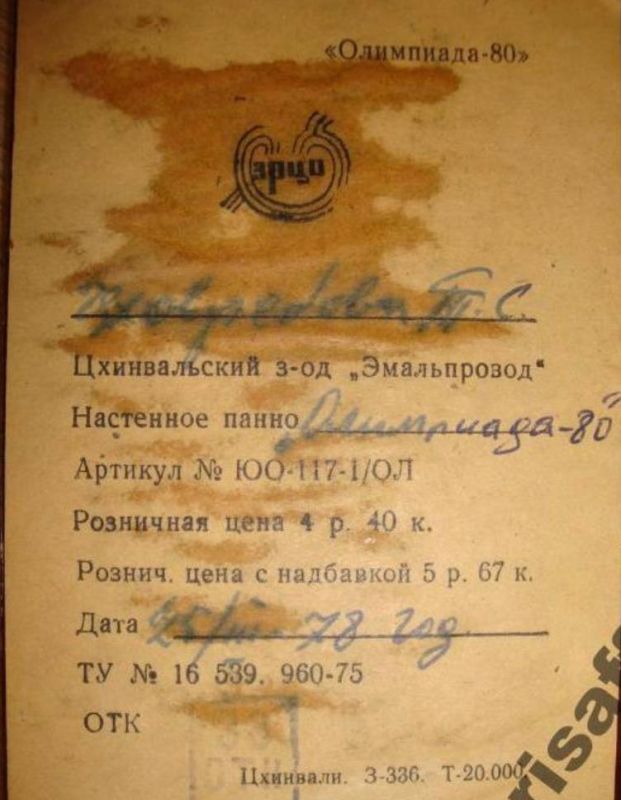 «Олимпиада-80»
эрцо
Т. С.
Цхинвальский з-од „Эмальпровод“
Настенное панно „Олимпиада-80"
Артикул № ЮО-117-1/ОЛ
Розничная цена 4 р. 40 к.
Рознич. цена с надбавкой 5 р. 67 к.
Дата 25/III-78 год
ТУ № 16 539. 960-75
ОТК
Цхинвали. З-336. Т-20.000
risaf